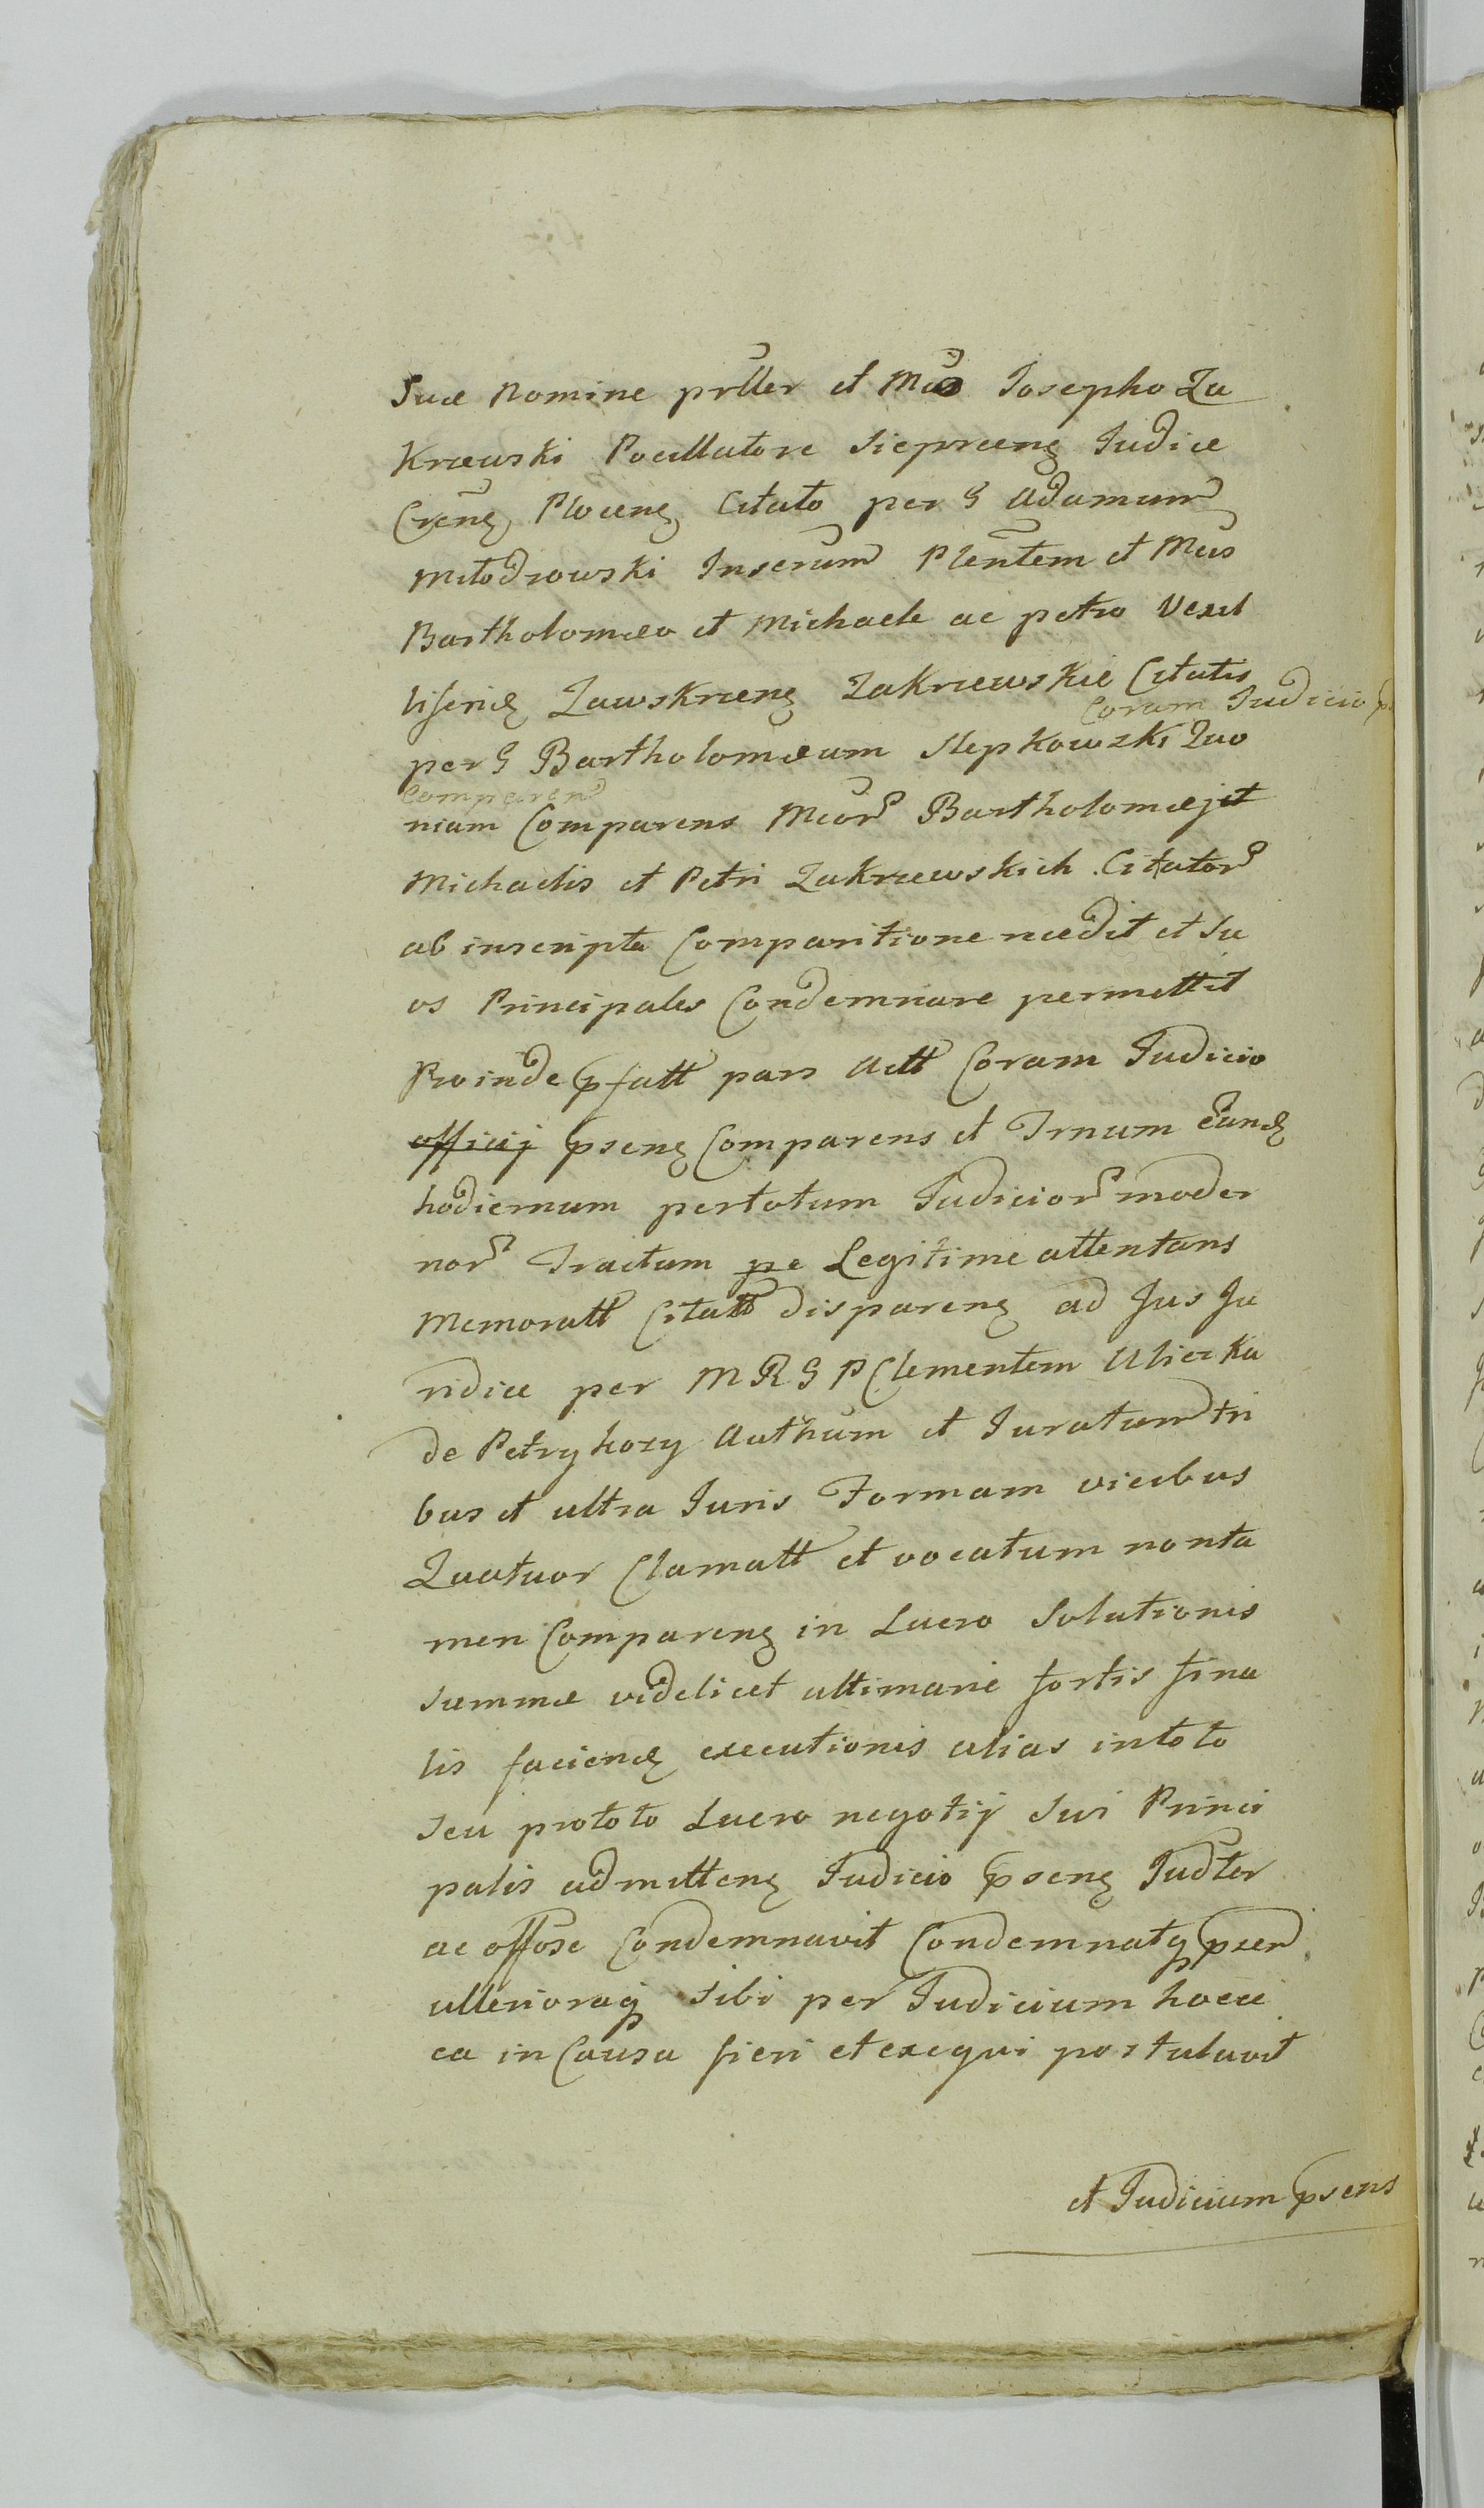 Suæ Nomine prller et Mco Josepho Za
Krzewski Pocillatore Sieprcenȩ Judice
Crenȩ Plocenȩ Citato per G Adamum
Młodzowski Inserum Plentem et Mcis
Bartholomæo et Michaele ac petro Vexil
liferidȩ Zawskrzenȩ Zakrzewskie Citatis
Coram Judicio
per G Bartholomæum Slepkowski Quo
Comparen
niam Comparens Mcor Bartholomæj et
Michaelis et Petri Zakrzewskich Citator
ab inscripta Comparitione recedit et Su
os Principales Condemnare permittit
Proinde pfatt pars Actt Coram Judicio
officij psenȩ Comparens et Trnum eundȩ
hodiernum pertotum Judicior moder
nor Tractum pe Legitime attentans
Memoratt Citatt disparenȩ ad Jus Ju
ridice per M R G P Clementem Ulicka
de Petrykozy Authum et Juratum tri
bus et ultra Juris Formam vicibus
Quatuor Clamatt et vocatum non ta
men Comparenȩ in Lucro Solutionis
summæ videlicet ultimarie sortis fina
lis faciendȩ executionis alias in toto
seu pro toto Lucro negotij Sui Princi
palis admittenȩ Judicio psenȩ Judter
ac offose Condemnavit Condemnatq psen
ulterioraq sibi per Judicium hocce
ea in Causa fieri et exequi postulavit
et Judicium psens